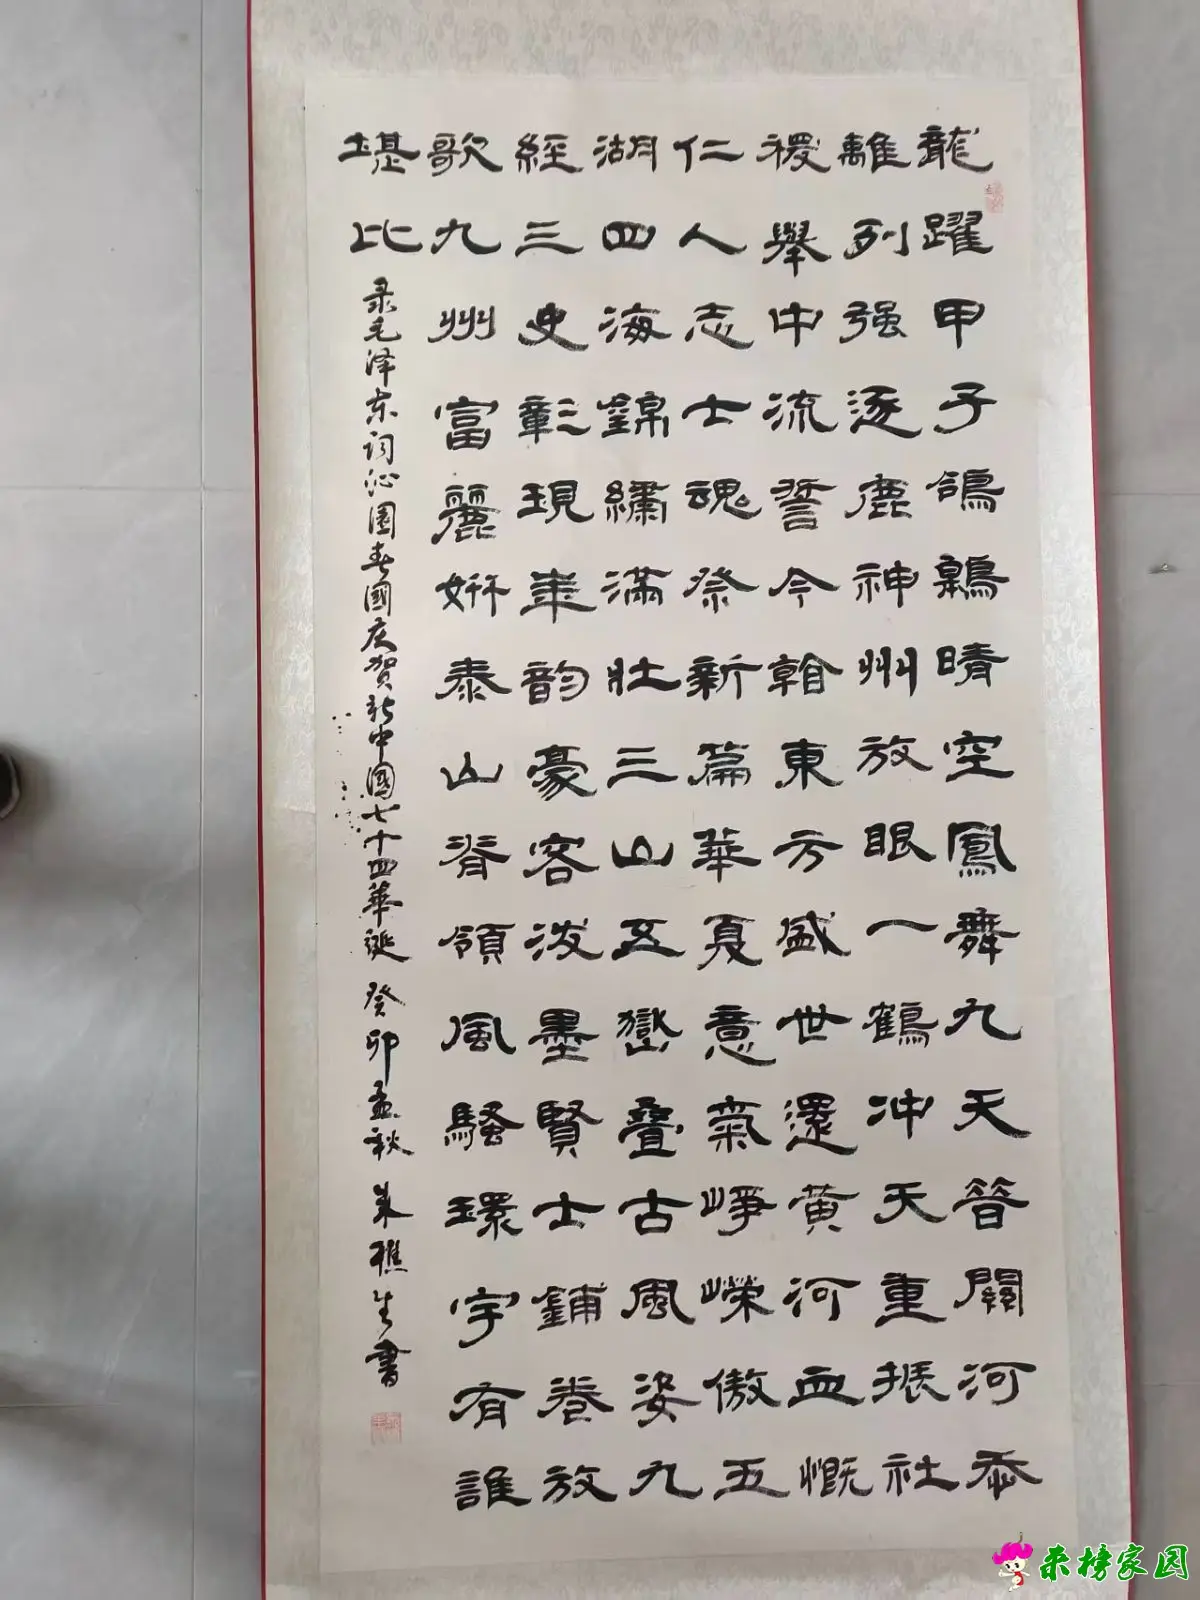 龍躍甲子鴿晴空鳳舞九天關河黍
離列强逐鹿神州放眼一鶴冲天重振社
稷舉中流誓今翰東方盛世還黄河血慨
仁人志士魂祭新篇華夏意氣崢嶸傲五
湖四海錦繡滿壯三山五嶽疊古風姿九
經三史彰現年韵豪容潑墨賢士鋪卷放
歌九州富麗妍泰山脊領風騷環宇有誰
堪比
录毛泽东词沁園春國庆贺新中國七十四華诞 癸卯孟秋 朱樵生書
来榜家园